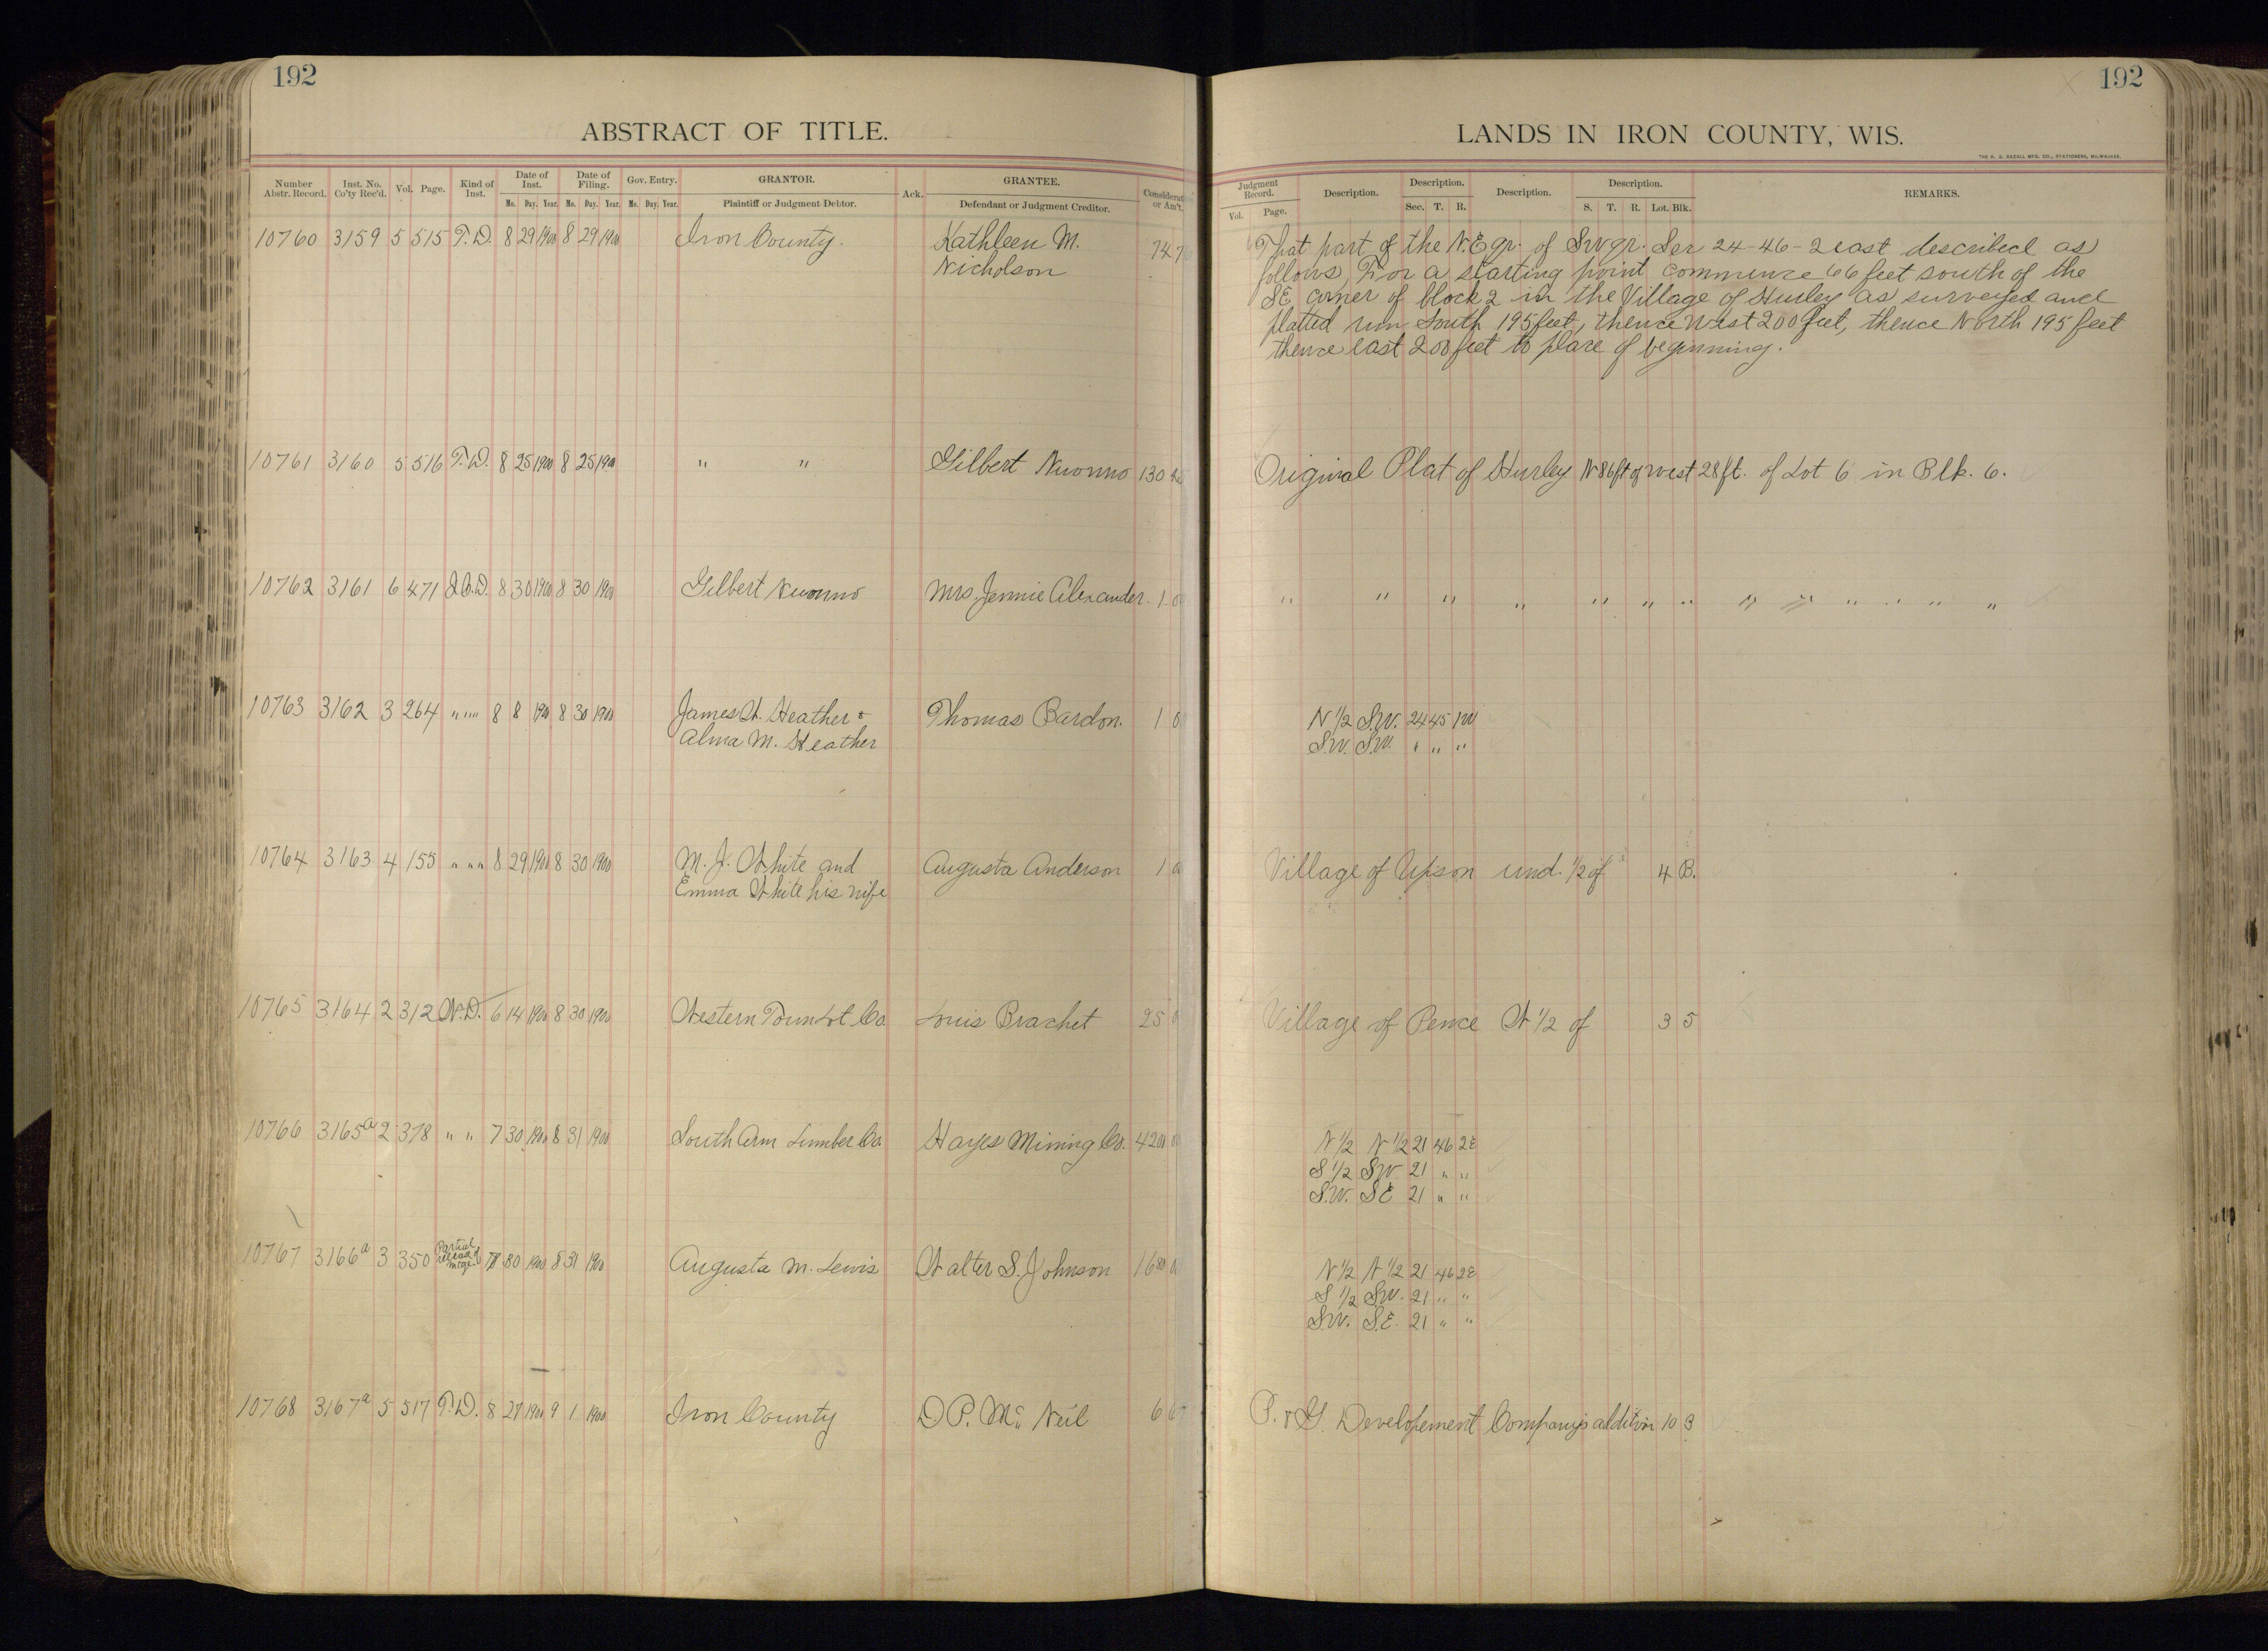 192
ABSTRACT OF TITLE.
Number Abstr. Record. Inst. No. Co'ty Rec'd. Vol. Page. Kind of Inst. Date of Inst. Mo. Day. Year. Date of Filing. Mo. Day. Year. Gov. Entry. Mo. Day. Year. GRANTOR. Plaintiff or Judgment Debtor. Ack. GRANTEE. Defendant or Judgment Creditor. Considerat or Am't.
10760 3159 5 515 T.D. 8 29 1900 8 29 1900 Iron County. Kathleen M. 74 7
Nicholson
10761 3160 5 516 T.D. 8 25 1900 8 25 1900 " " Gilbert 130
10762 3161 6 471 Q.C.D. 8 30 1900 8 30 1900 Gilbert Mrs. Jennie Alexander. 1 0
10763 3162 3 264 " " " 8 8 1900 8 30 1900 James W. Heather & Thomas Bardon. 1 0
Alma M. Heather
10764 3163 4 155 " " " 8 29 1900 8 30 1900 M. J. White and Augusta Anderson 1 0
Emma White his wife
10765 3164 2 312 W.D. 6 14 1900 8 30 1900 Western Town Lot Co Louis Brachet 25 0
10766 3165a 2 378 " " 7 30 1900 8 31 1900 South Arm Lumber Co Hayes Mining Co. 4200 0
10767 3166a 3 350 Partial release of mtge 30 1900 8 31 1900 Augusta M. Lewis Walter S. Johnson 1680 0
10768 3167a 5 517 T.D. 8 27 1900 9 1 1900 Iron County D.P. Mc Neil 6 67
192
LANDS IN IRON COUNTY, WIS.
THE H. G. RAZALL MFG. CO., STATIONERS, MILWAUKEE.
Judgment Record. Vol. Page. Description. Description. Sec. T. R. Description. Description. S. T. R. Lot. Blk. REMARKS.
That part of the N.E qr. of SW qr. Sec 24-46-2 east described as
follows, For a starting point commence 66 feet south of the
SE corner of block 2 in the Village of Hurley as surveyed and
platted run South 195 feet, thence West 200 feet, thence North 195 feet
thence east 200 feet to place of beginning.
Original Plat of Hurley N 86 ft of west 28 ft. of Lot 6 in Blk. 6.
" " " " " " " " " " " " "
N 1/2 S.W. 24 45 1W
S.W. S.W. " " "
Village of Upson und. 1/2 of 4 B.
Village of Pence W 1/2 of 3 5
N 1/2 N 1/2 21 46 2E
S 1/2 SW 21 " "
S.W. SE 21 " "
N 1/2 N 1/2 21 46 2E
S 1/2 S.W. 21 " "
S.W. S.E. 21 " "
P. & G. Developement Company's addition 10 3